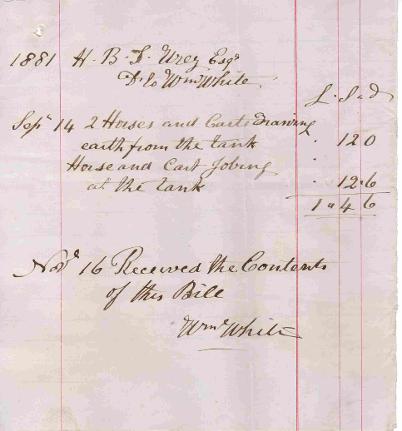 1881 H. B. T. Wrey Esqr
Dr to Wm White
£ . S . d
Sepr 14 2 Horses and Carts Drawing
earth from the tank . 12 0
Horse and Cart Jobing
at the tank . 12 . 6
1 " 4 6
Novr 16 Received the Contents
of this Bill
Wm White